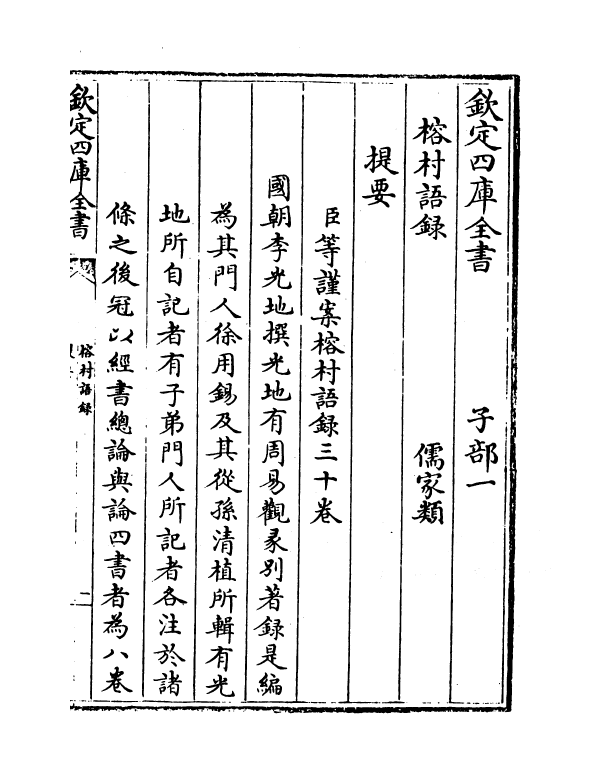 欽定四庫全書 子部一
榕村語録 儒家類
提要
臣等謹案榕村語録三十卷
國朝李光地撰光地有周易觀彖別著録是編
為其門人徐用錫及其從孫清植所輯有光
地所自記者有子弟門人所記者各注於諸
條之後冠以經書總論與論四書者為八卷
欽定四庫全書
榕村語録